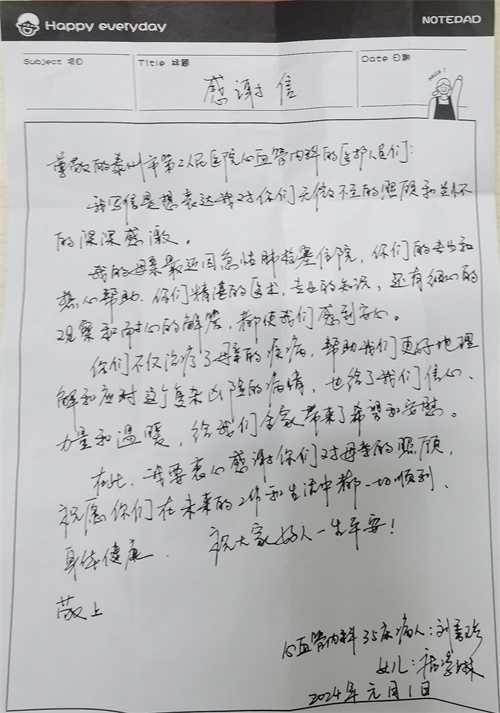 Happy everyday
NOTEDAD
Subject 项目
Title 标题
Date 日期
HELLO!
感谢信
尊敬的泰州市第二人民医院心血管内科的医护人员们:
我写信是想表达我对你们无微不至的照顾和关怀
的深深感激。
我的母亲最近因急性肺栓塞住院,你们的专业和
热心帮助,你们精湛的医术,专业的知识,还有细心的
观察和耐心的解答,都使我们感到安心。
你们不仅治疗了母亲的疾病,帮助我们更好地理
解和应对这个复杂凶险的病情,也给了我们信心、
力量和温暖,给我们全家带来了希望和安慰。
在此,我要衷心感谢你们对母亲的照顾,
祝愿你们在未来的工作和生活中都一切顺利、
身体健康. 祝大家好人一生平安!
敬上
心血管内科35床病人:刘
女儿:
2024年元月1日